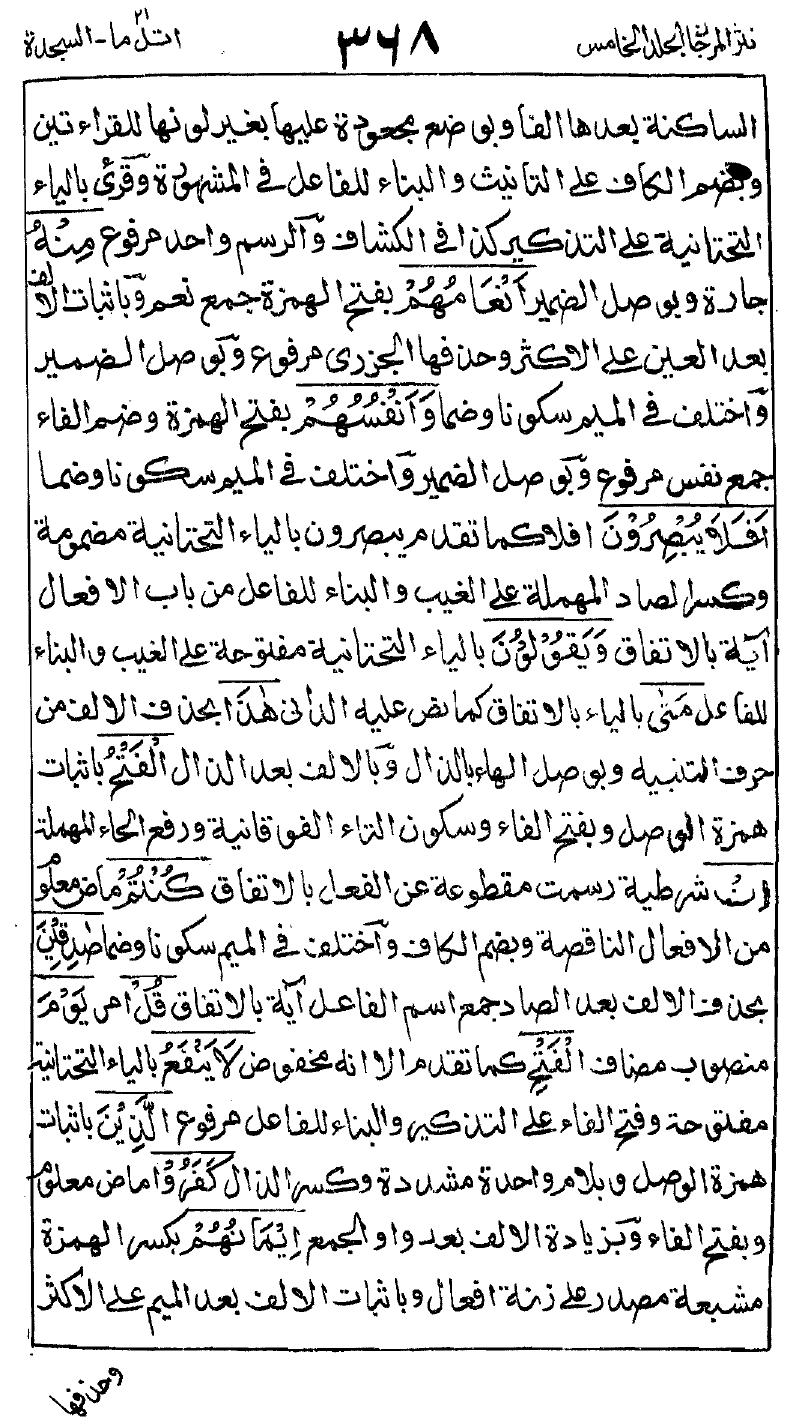 نثر المرجان الجلد الخامس ٣٦٨ اتل ما - السجدة ٢١
الساكنة بعدها الفا وبوضع مجعودة عليها بغير لونها للقراءتين
وبضم الكاف على التانيث والبناء للفاعل في المشهورة وقرئ بالياء
التحتانية على التذكير كذا في الكشاف والرسم واحد مرفوع مِنْهُ
جارة وبوصل الضمير اَنْعَامُهُمْ بفتح الهمزة جمع نعم وباثبات الالف
بعد العين على الاكثر وحذفها الجزري مرفوع وبوصل الضمير
واختلف في الميم سكونا وضما وَاَنْفُسُهُمْ بفتح الهمزة وضم الفاء
جمع نفس مرفوع وبوصل الضمير واختلف في الميم سكونا وضما
اَفَلَا يُبْصِرُوْنَ افلا كما تقدم يبصرون بالياء التحتانية مضمومة
وكسر الصاد المهملة على الغيب والبناء للفاعل من باب الافعال
آية بالاتفاق وَيَقُوْلُوْنَ بالياء التحتانية مفتوحة على الغيب والبناء
للفاعل مَتٰى بالياء بالاتفاق كما نص عليه الداني هٰذَا بحذف الالف من
حرف التنبيه وبوصل الهاء بالذال وبالالف بعد الذال الْفَتْحُ باثبات
همزة الوصل وبفتح الفاء وسكون التاء الفوقانية ورفع الحاء المهملة
اِنْ شرطية رسمت مقطوعة عن الفعل بالاتفاق كُنْتُمْ ماض معلوم
من الافعال الناقصة وبضم الكاف واختلف في الميم سكونا وضما صٰدِقِيْنَ
بحذف الالف بعد الصاد جمع اسم الفاعل آية بالاتفاق قُلْ امر يَوْمَ
منصوب مضاف الْفَتْحِ كما تقدم الا انه مخفوض لَا يَنْفَعُ بالياء التحتانية
مفتوحة وفتح الفاء على التذكير والبناء للفاعل مرفوع الَّذِيْنَ باثبات
همزة الوصل وبلام واحدة مشددة وكسر الذال كَفَرُوْا ماض معلوم
وبفتح الفاء وبزيادة الالف بعد واو الجمع اِيْمَانُهُمْ بكسر الهمزة
مشبعة مصدر على زنة افعال وباثبات الالف بعد الميم على الاكثر
وحذفها